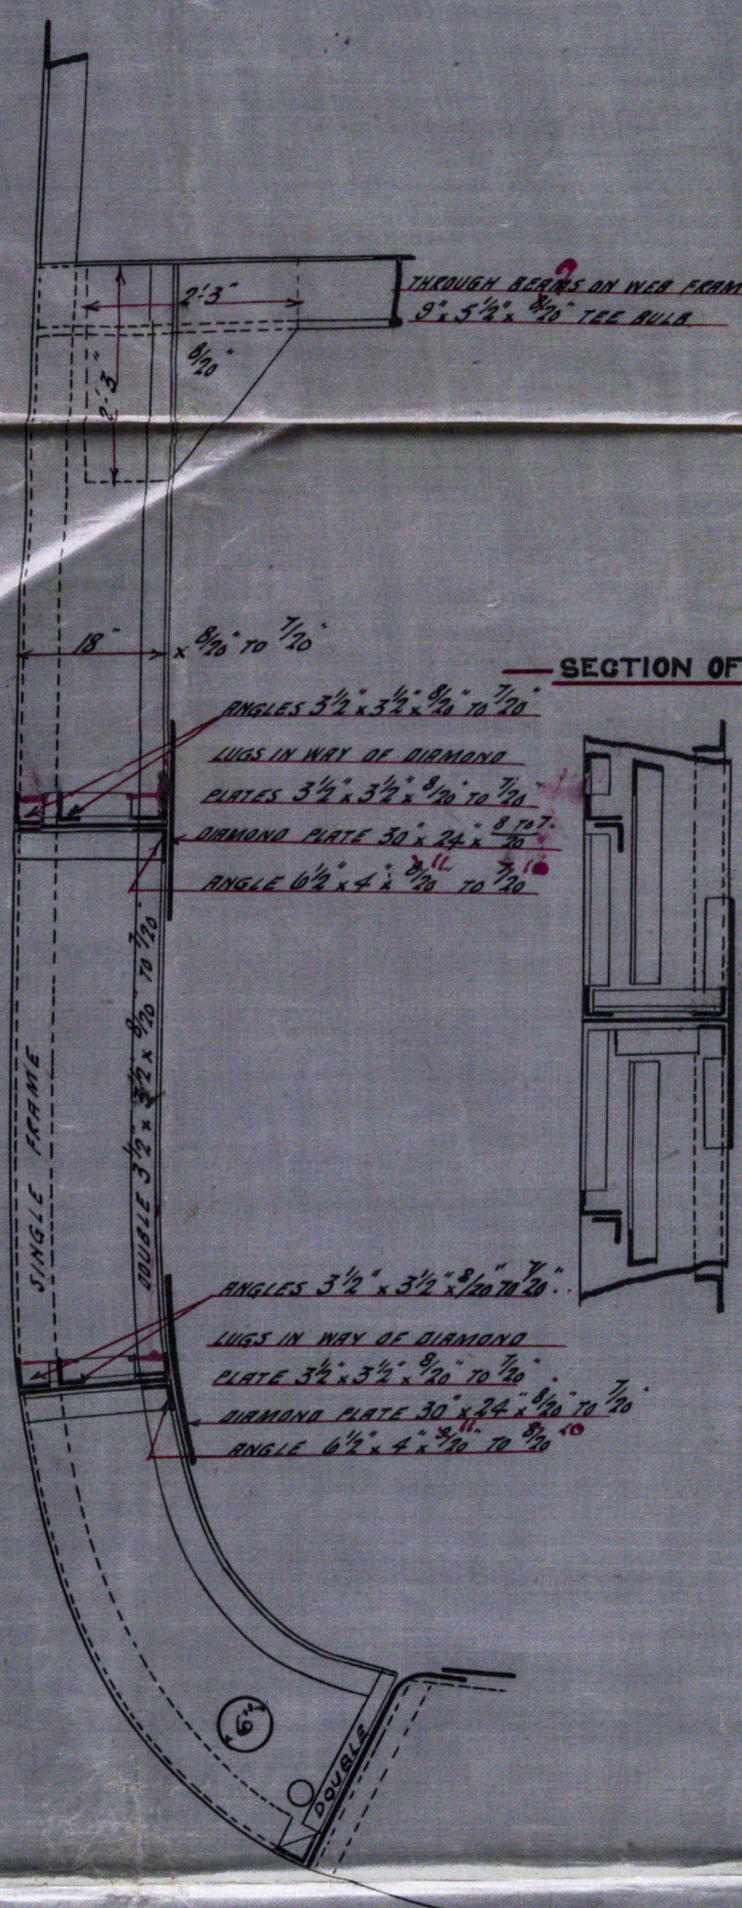 THROUGH BEAMS ON WEB FRAM
9" x 5 1/2" x 8/20" TEE BULB
2'-3"
8/20"
2'-3"
18" x 8/20" TO 7/20"
SECTION OF
ANGLES 3 1/2" x 3 1/2" x 8/20" TO 7/20"
LUGS IN WAY OF DIAMOND
PLATES 3 1/2" x 3 1/2" x 8/20" TO 7/20"
DIAMOND PLATE 30" x 24" x 8 TO 7/20"
ANGLE 6 1/2" x 4" x 8/20" TO 7/20"
SINGLE FRAME
DOUBLE 3 1/2" x 3 1/2" x 8/20" TO 7/20"
ANGLES 3 1/2" x 3 1/2" x 8/20" TO 7/20"
LUGS IN WAY OF DIAMOND
PLATE 3 1/2" x 3 1/2" x 8/20" TO 7/20"
DIAMOND PLATE 30" x 24" x 8/20" TO 7/20"
ANGLE 6 1/2" x 4" x 9/20" TO 8/20"
DOUBLE